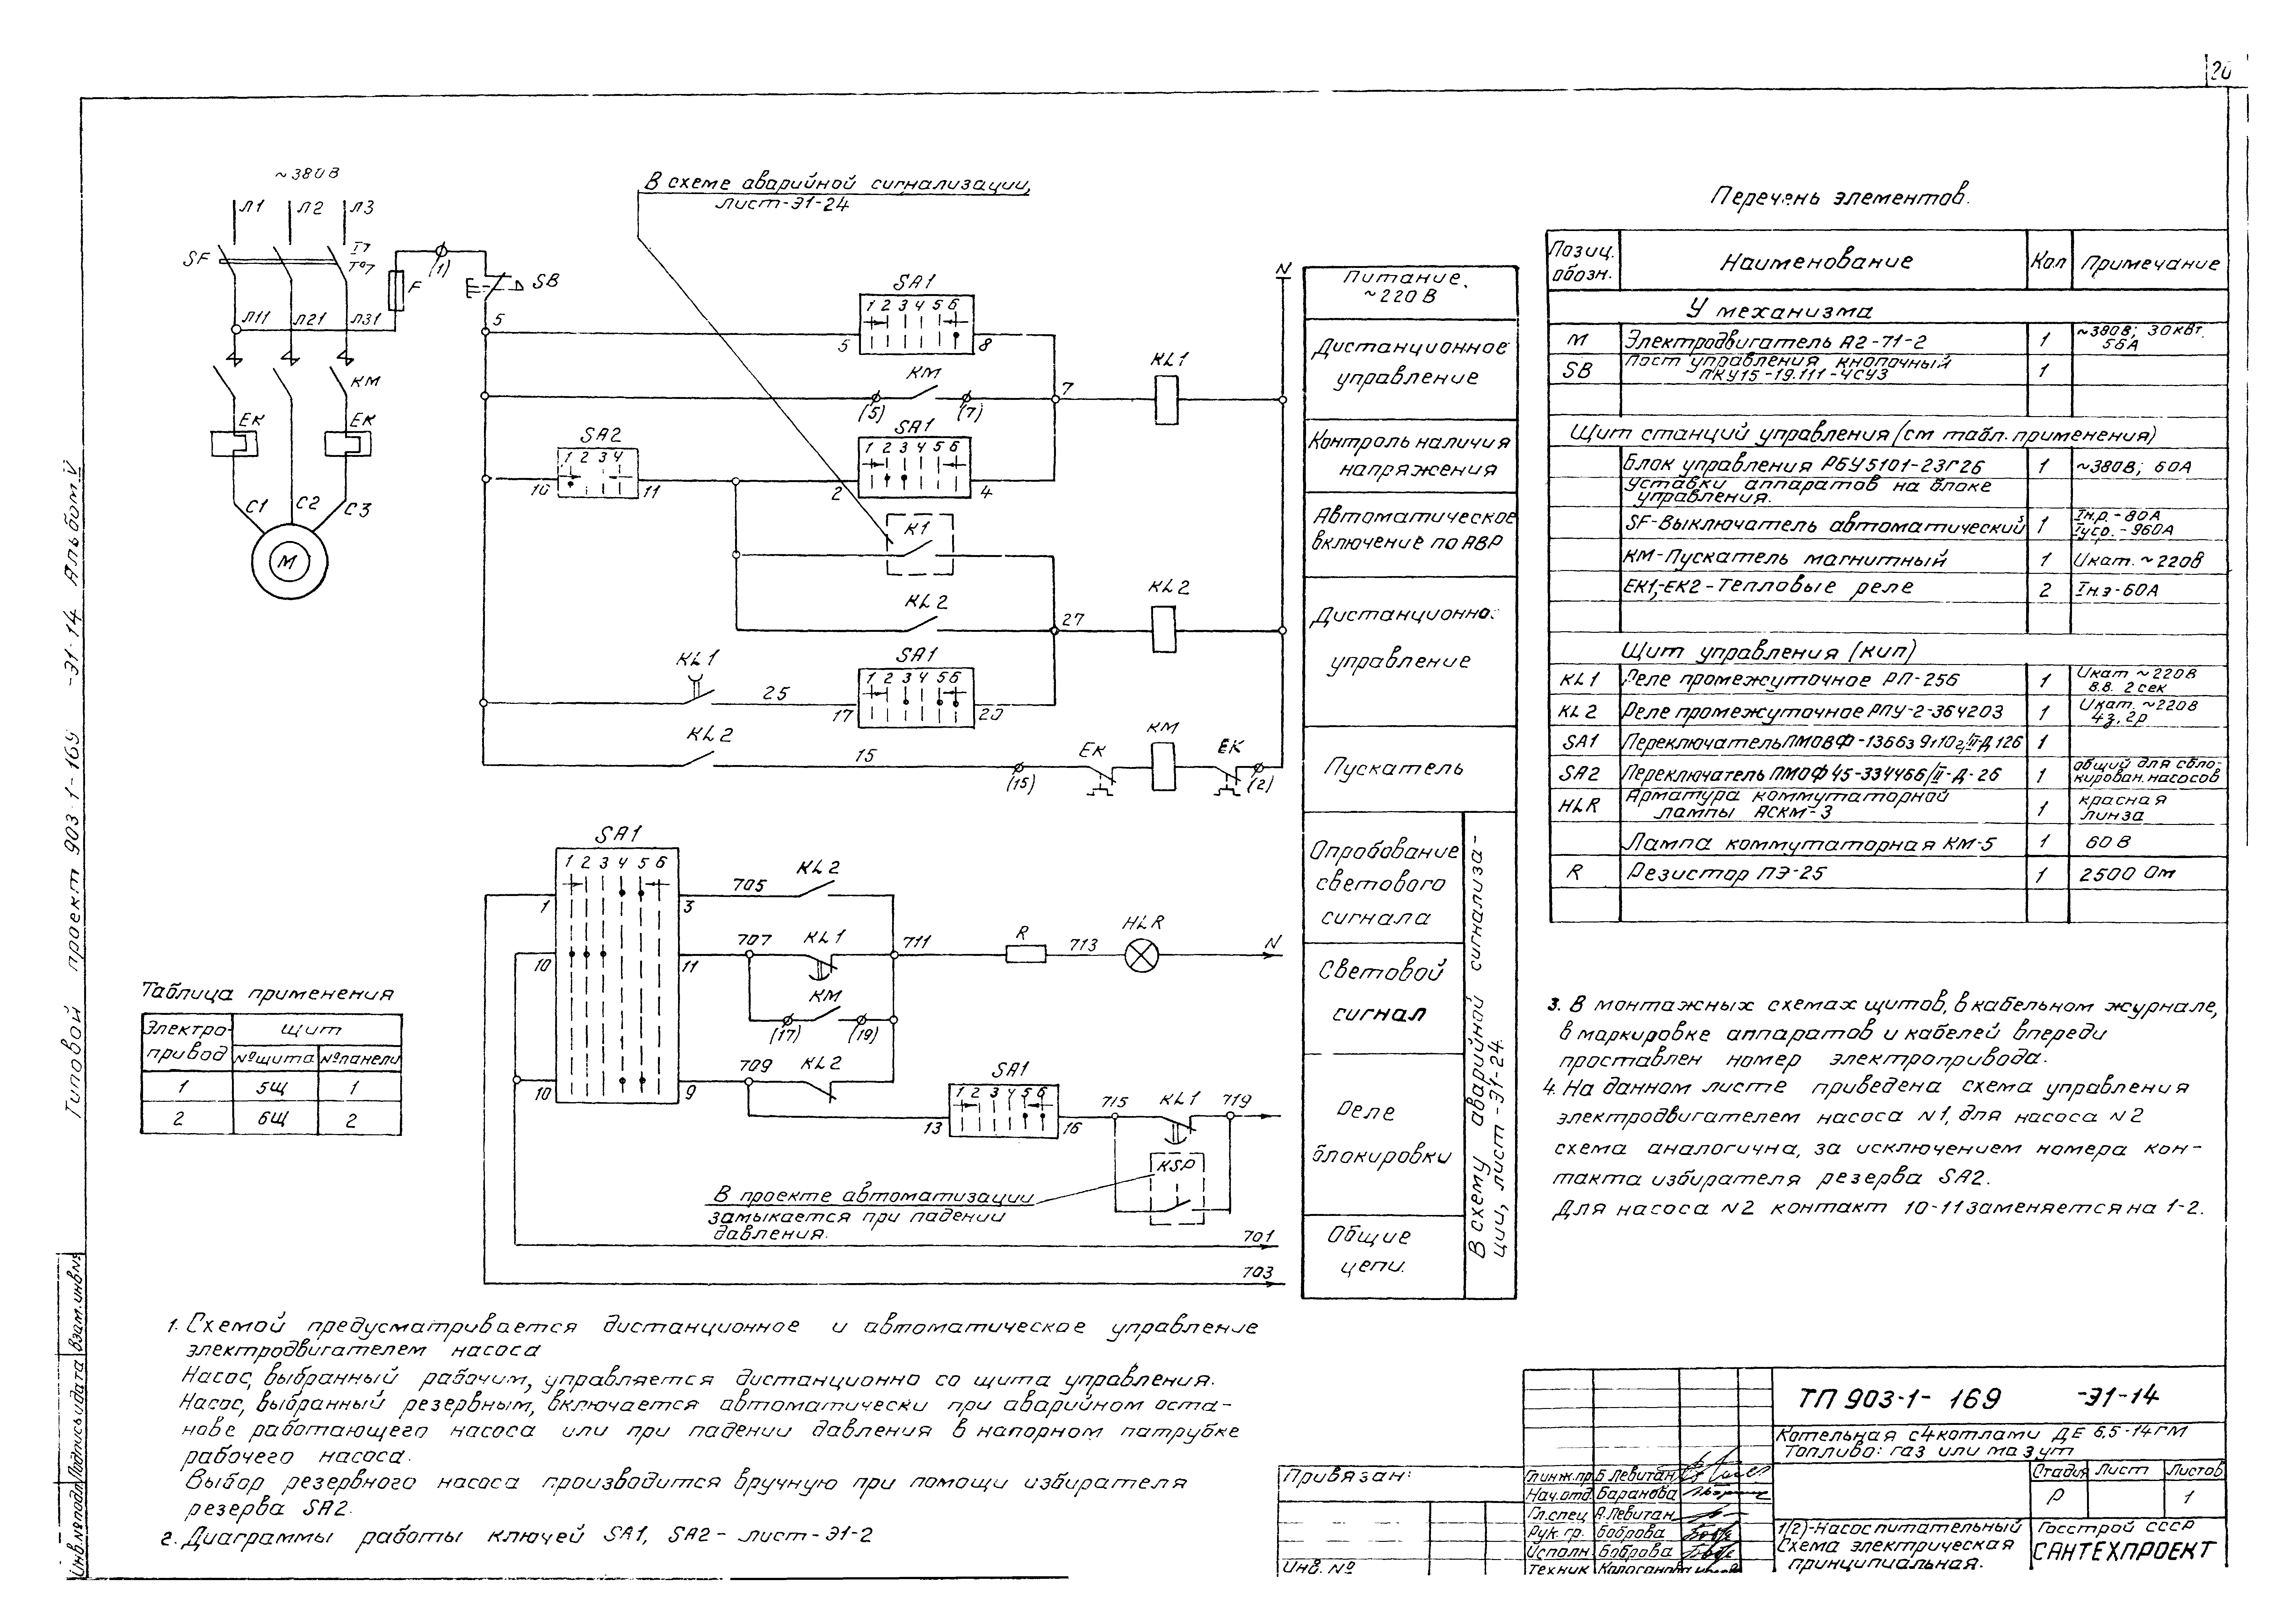 20
~380В
Л1 Л2 Л3
SF
Л11 Л21 Л31
F
(1)
SB
5
КМ
ЕК ЕК
С1 С2 С3
М
В схеме аварийной сигнализации,
лист-Э1-24
SA1
1 2 3 4 5 6
5 8
КМ
(5) (7)
7
KL1
N
SA2
1 2 3 4
10 11
SA1
1 2 3 4 5 6
2 4
К1
KL2
27
KL2
KL1
25
SA1
1 2 3 4 5 6
17 20
KL2
15
(15)
ЕК КМ ЕК
(2)
SA1
1 2 3 4 5 6
1 3
705
KL2
10 11
707
KL1
711
R
713
HLR
N
КМ
(17) (19)
10 9
709
KL2
SA1
1 2 3 4 5 6
13 16
715
KL1
719
KSP
В проекте автоматизации
замыкается при падении
давления.
701
703
Питание.
~220В
Дистанционное
управление
Контроль наличия
напряжения
Автоматическое
включение по АВР
Дистанционно.
управление
Пускатель
Опробование
светового
сигнала
Световой
сигнал
Реле
блокировки
Общие
цепи.
В схему аварийной сигнализа-
ции, лист-Э1-24.
Перечень элементов.
Позиц. обозн. Наименование Кол Примечание
У механизма
М Электродвигатель А2-71-2 1 ~380В; 30кВт. 56А
SB Пост управления кнопочный ПКУ15-19.111-ЧСУ3 1
Щит станций управления (см табл. применения)
Блок управления РБУ5101-23Г2б 1 ~380В; 60А
Уставки аппаратов на блоке
управления.
SF-Выключатель автоматический 1 Iн.р.-80А Iуср.-960А
КМ-Пускатель магнитный 1 Uкат.~220В
ЕК1,-ЕК2-Тепловые реле 2 Iн.э-60А
Щит управления (кип)
KL1 Реле промежуточное РП-256 1 Uкат ~220В в.в. 2сек
KL2 Реле промежуточное РПУ-2-364203 1 Uкат.~220В 4з,2р
SA1 1
SA2 Переключатель ПМОФ45-334466/II-Д-26 1 общий для сбло- кирован. насосов
HLR Арматура коммутаторной лампы АСКМ-3 1 красная линза
Лампа коммутаторная КМ-5 1 60В
R Резистор ПЭ-25 1 2500 Ом
Таблица применения
Электро- привод щит
№щита №панели
1 5Щ 1
2 6Щ 2
3. В монтажных схемах щитов, в кабельном журнале,
в маркировке аппаратов и кабелей впереди
проставлен номер электропривода.
4. На данном листе приведена схема управления
электродвигателем насоса N1, для насоса N2
схема аналогична, за исключением номера кон-
такта избирателя резерва SA2.
Для насоса N2 контакт 10-11 заменяется на 1-2.
1. Схемой предусматривается дистанционное и автоматическое управление
электродвигателем насоса
Насос, выбранный рабочим, управляется дистанционно со щита управления.
Насос, выбранный резервным, включается автоматически при аварийном оста-
нове работающего насоса или при падении давления в напорном патрубке
рабочего насоса.
Выбор резервного насоса производится вручную при помощи избирателя
резерва SA2.
2. Диаграммы работы ключей SA1, SA2- лист-Э1-2
Типовой проект 903-1-169 -Э1-14 Альбом V
Инв.№подл Подпись и дата Взам.инв№
Привязан:
Инв. №
Гл.инж.пр. Б.Левитан
Нач.отд. Баранова
Гл.спец А.Левитан
Рук. гр. Боброва
Исполн. Боброва
Техник
ТП 903-1-169 -Э1-14
Котельная с 4 котлами ДЕ 6,5-14ГМ
Топливо: газ или мазут
Стадия Лист Листов
Р 1
1(2)-Насос питательный
Схема электрическая
принципиальная.
Госстрой СССР
САНТЕХПРОЕКТ